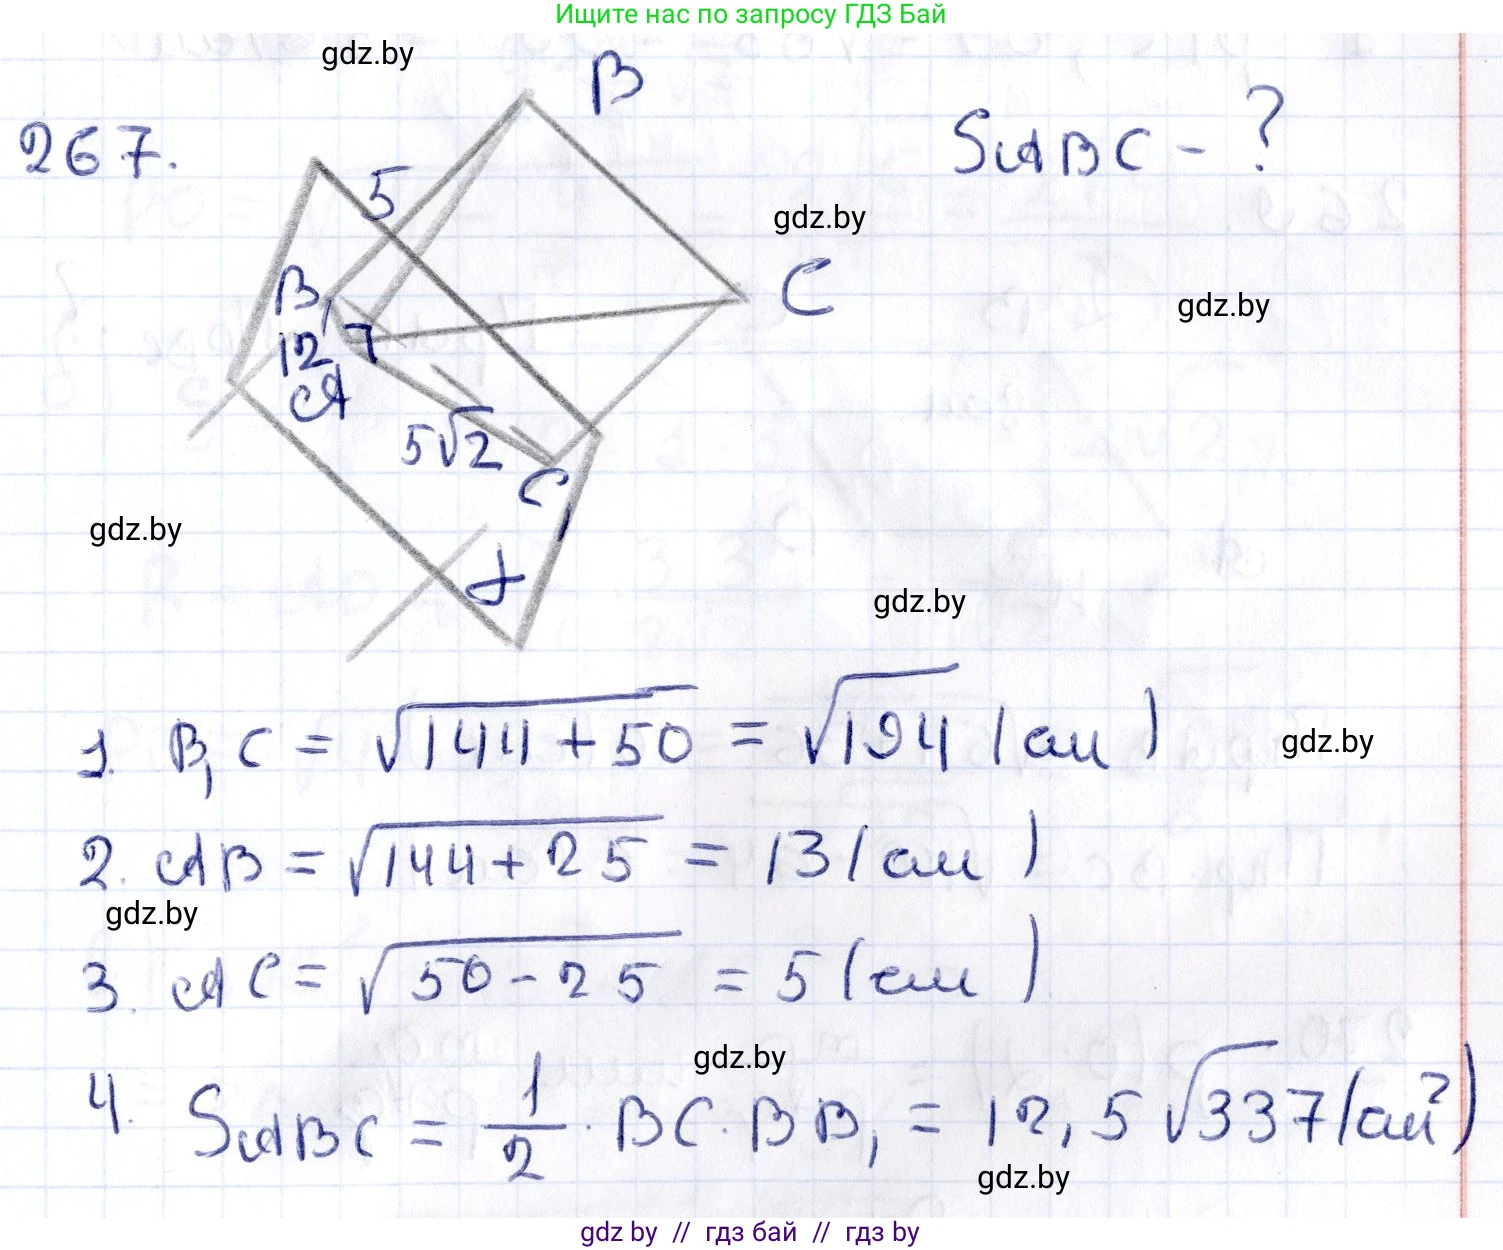 Ищите нас по запросу ГДЗ Бай
gdz.by
B
267.
SABC - ?
5
gdz.by
B1
C
gdz.by
12
A
5√2
C1
gdz.by
α
gdz.by
1. B1C = √144+50 = √194 (см)
gdz.by
2. AB = √144+25 = 13 (см)
gdz.by
3. AC = √50-25 = 5 (см)
gdz.by
4. SABC = 1/2 · BC · BB1 = 12,5√337 (см²)
gdz.by
gdz.by // гдз бай // гдз by